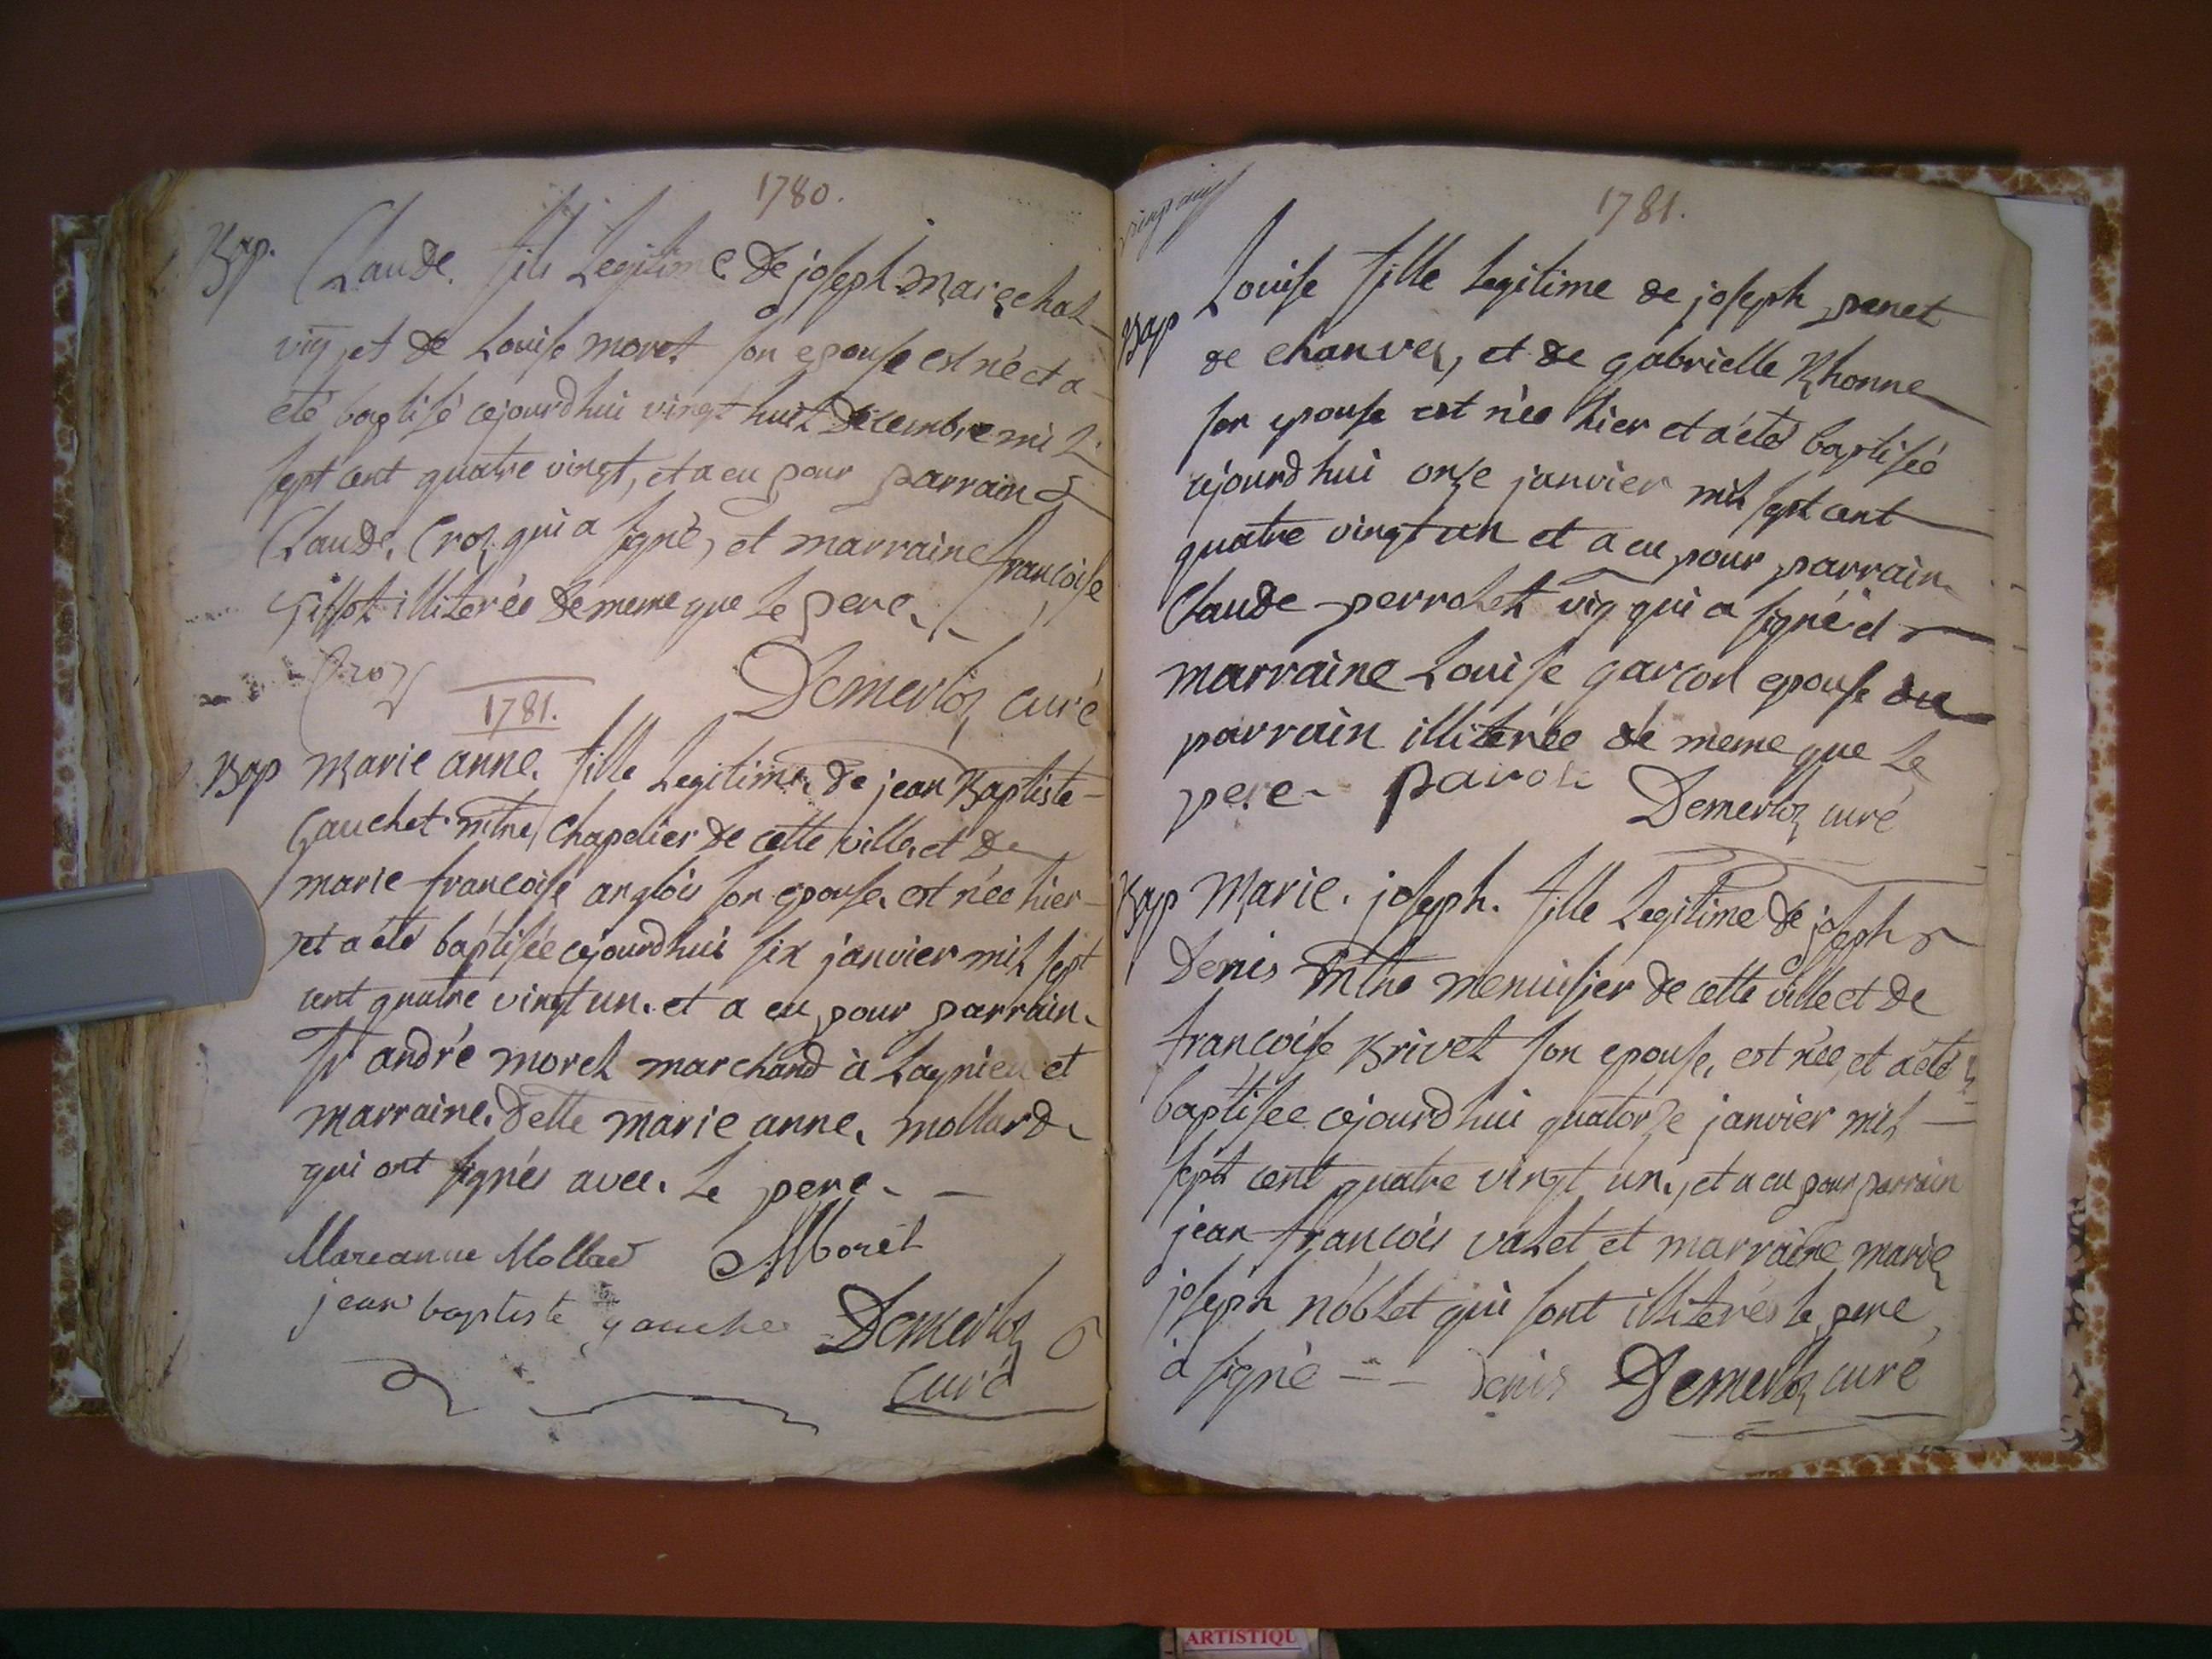 1780.
Bap. Claude. fils Legitime de joseph Marechal
vig, et de Louise moret son epouse est né et a
été baptisé cejourdhui vingt huit decembre mil
sept cent quatre vingt, et a eu pour parrain
Claude Croz qui a signé, et marraine francoise
illiterée de meme que le pere
Croz
Demerloz curé
1781.
Bap marie anne. fille Legitime de jean Baptiste
Gauchet mtre chapelier de cette ville et de
marie francoise anglois son epouse est née hier
et a été baptisée cejourdhui six janvier mil sept
cent quatre vingt un. et a eu pour parrain
Sr andré morel marchand à Lagnieu et
marraine. delle marie anne. mollard
qui ont signés avec. le pere
Mareanne Mollad AMorel
jean baptiste gauche Demerloz
curé
1781.
Bap Louise fille legitime de joseph penet
de chanves, et de gabrielle Rhonne
son epouse est née hier et a été baptisée
cejourdhui onze janvier mil sept cent
quatre vingt un et a eu pour parrain
Claude perrolet vig qui a signé et
marraine Louise garcon epouse du
parrain illiterée de meme que le
pere
Demerloz curé
Bap Marie. joseph. fille Legitime de joseph
Denis mtre menuisier de cette ville et de
francoise Brivet son epouse, est née, et a été
baptisee cejourdhui quatorze janvier mil
sept cent quatre vingt un, et a eu pour parrain
jean francois valet et marraine marie
joseph noblet qui sont illiterés le pere
a signé - - Denis Demerloz curé
ARTISTIQU